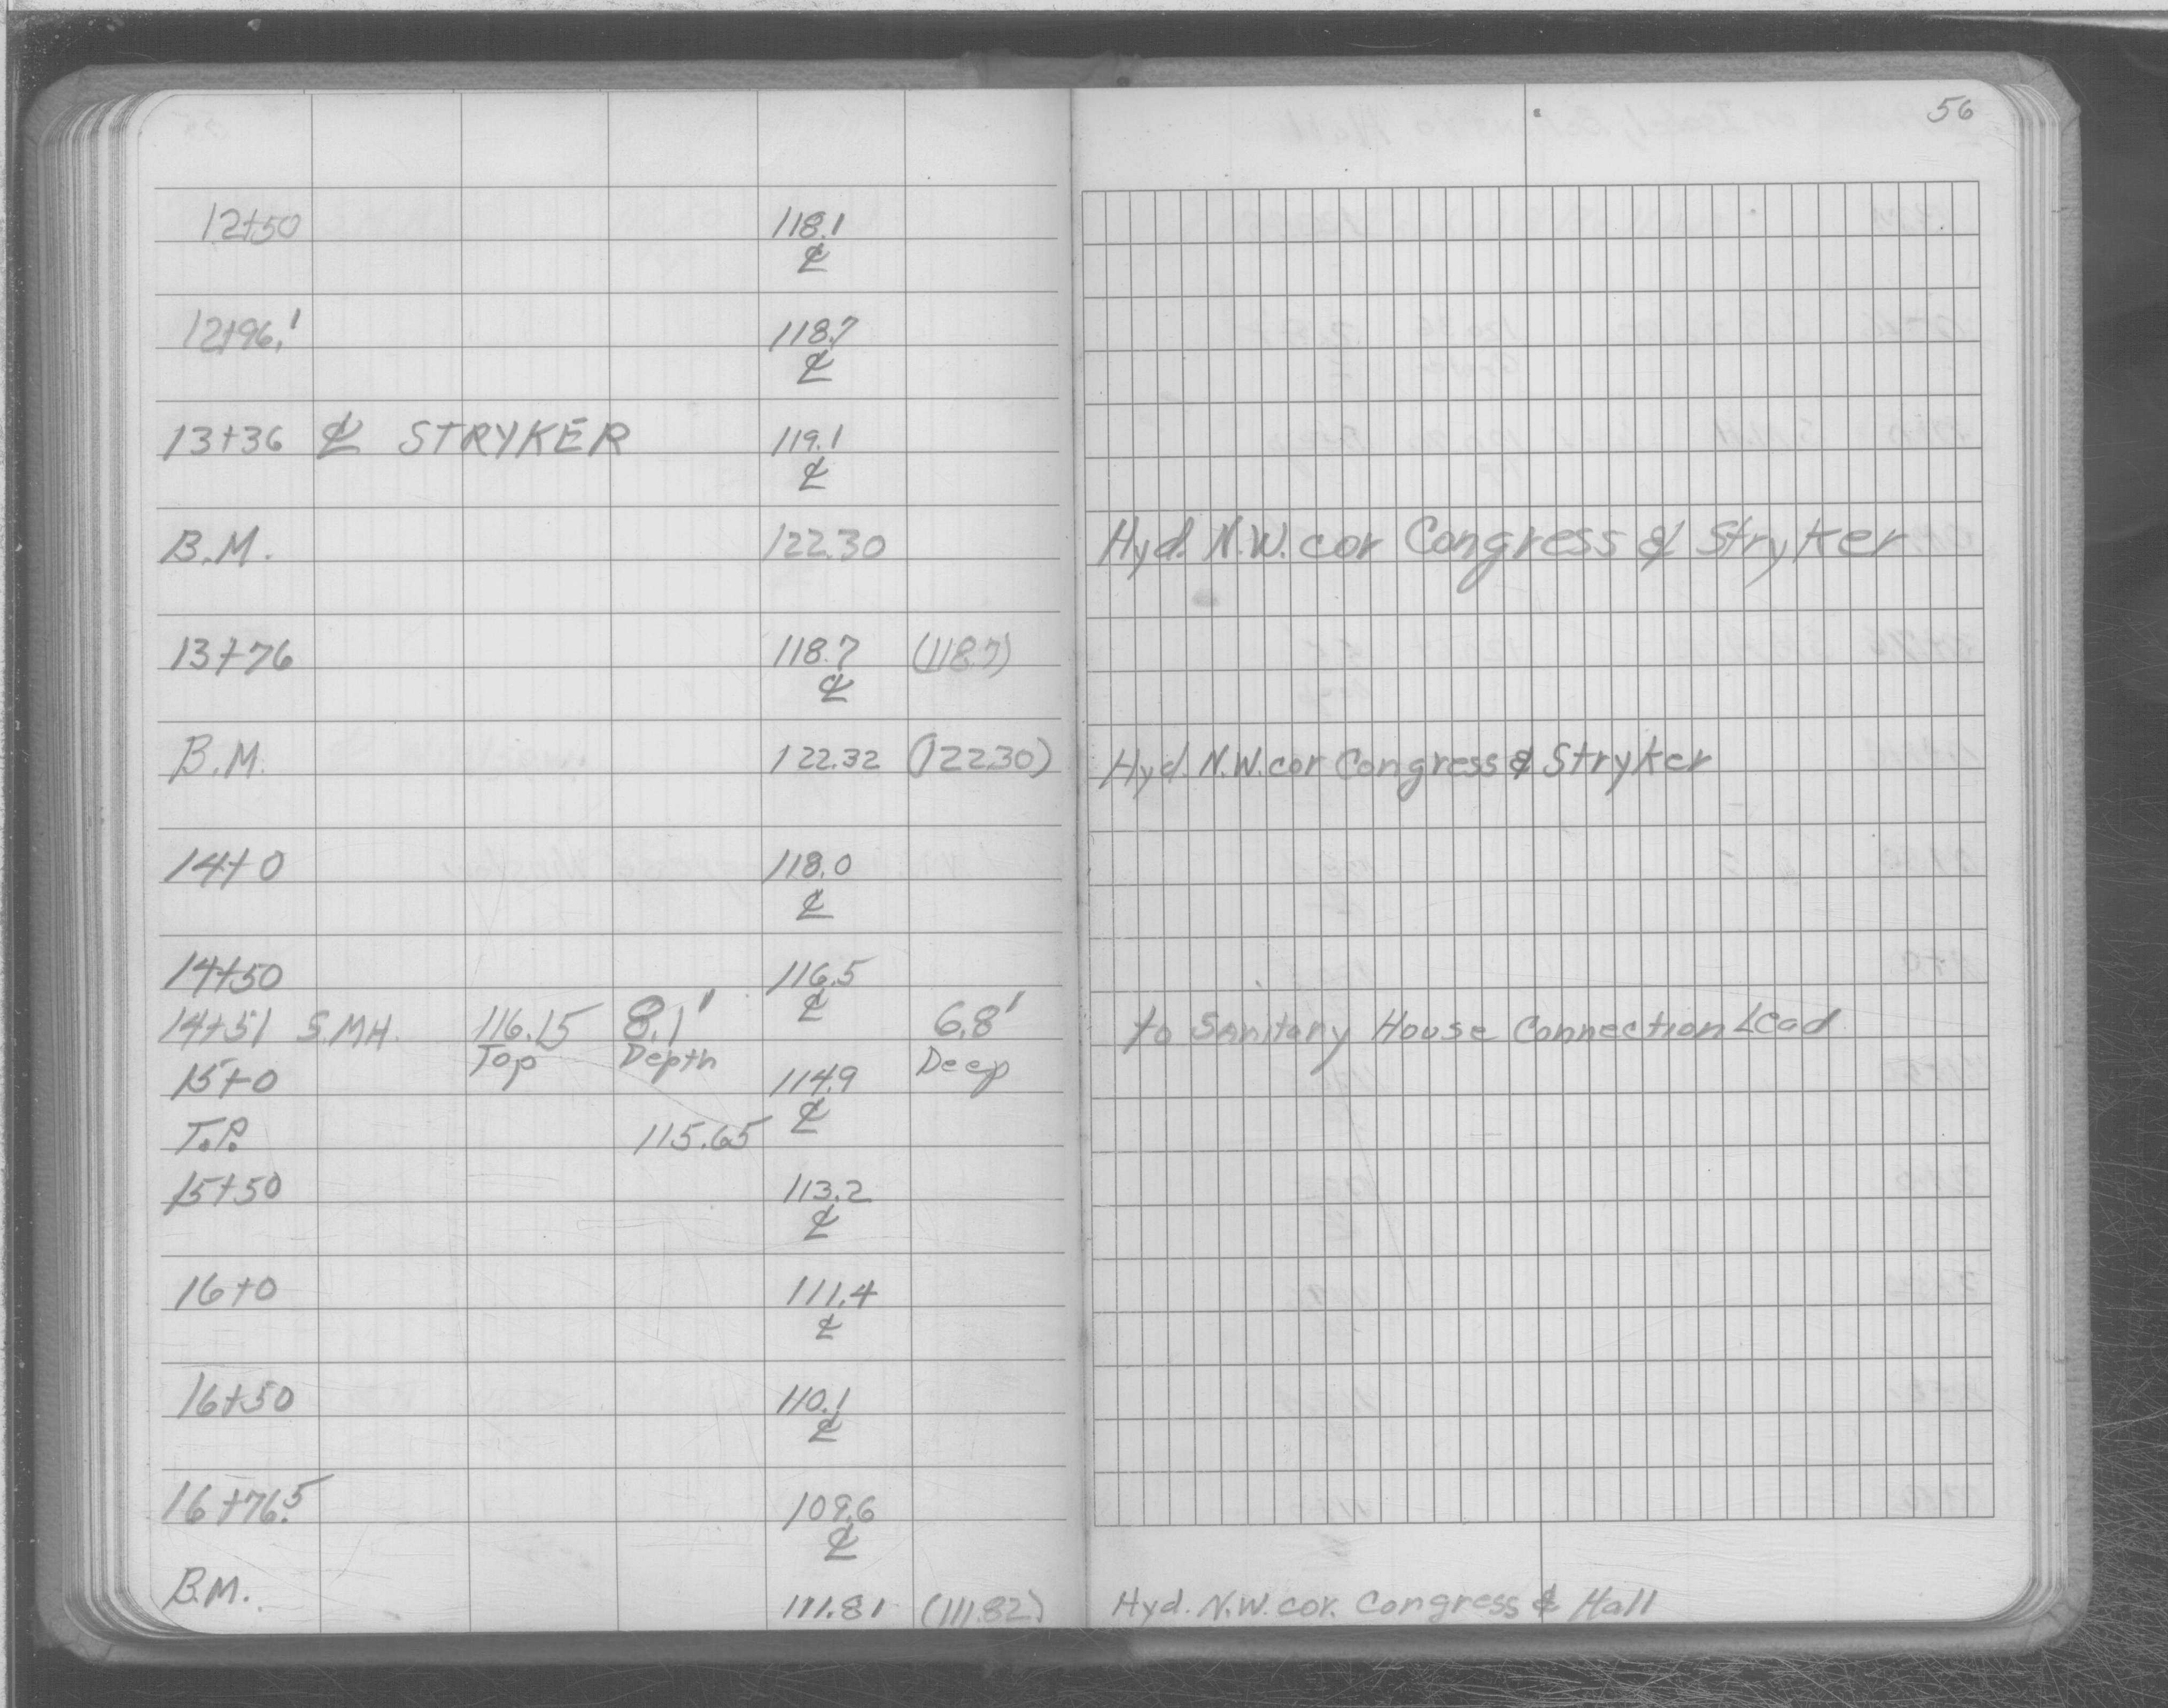 56
12+50 118.1
℄
12+96.1 118.7
℄
13+36 ℄ STRYKER 119.1
℄
B.M. 122.30 Hyd. N.W. cor Congress & Stryker
13+76 118.7 (118.7)
℄
B.M. 122.32 (122.30) Hyd. N.W. cor Congress & Stryker
14+0 118.0
℄
14+50 116.5
℄
14+51 S.MH. 116.15 8.1' 6.8' to Sanitary House Connection Lead
Top Depth Deep
15+0 114.9
℄
T.P. 115.65
15+50 113.2
℄
16+0 111.4
℄
16+50 110.1
℄
16+76.5 109.6
℄
B.M. 111.81 (111.82) Hyd. N.W. cor. Congress & Hall